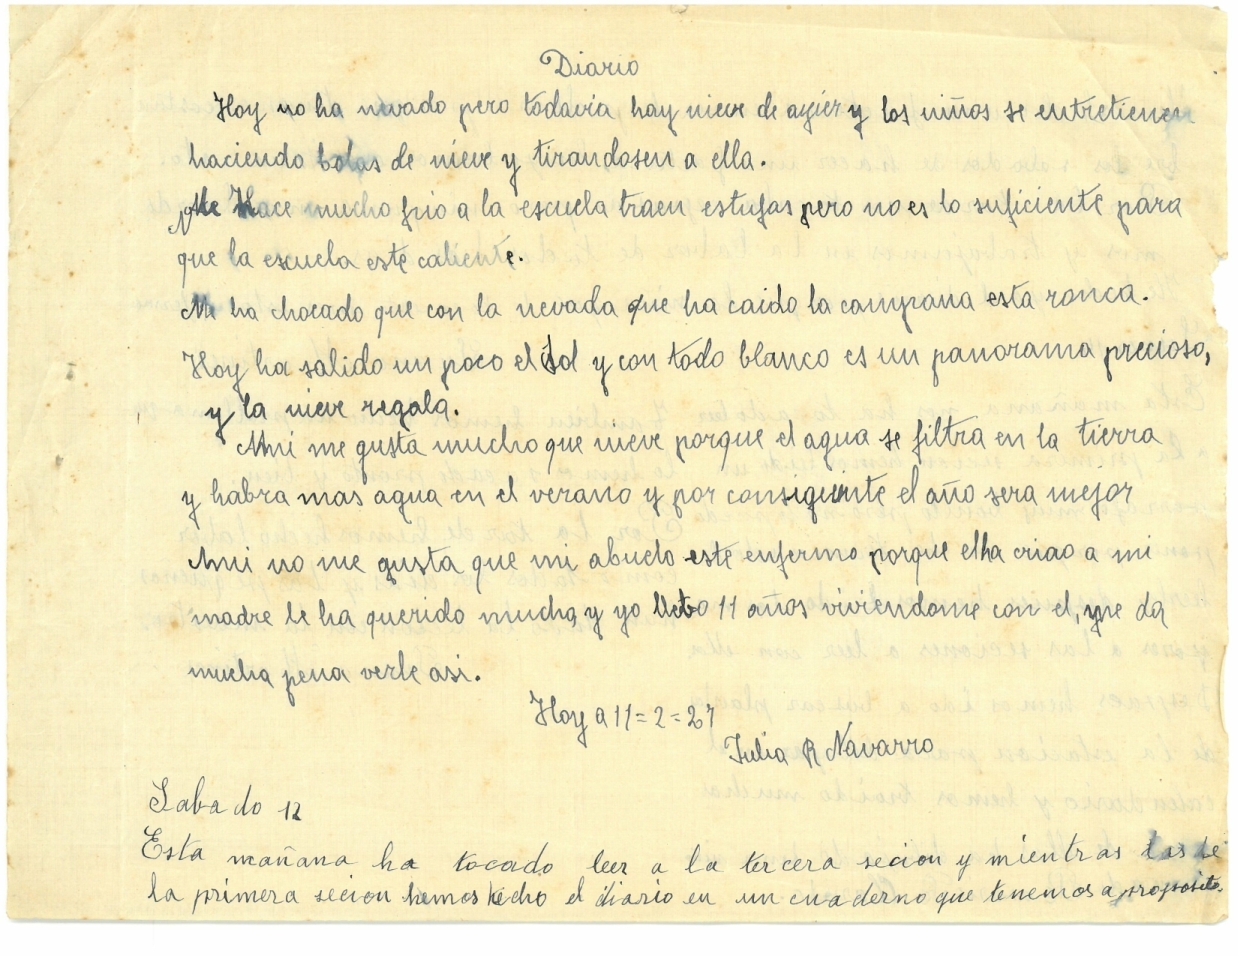 Diario
Hoy no ha nevado pero todavia hay nieve de ayier y los niños se entretienen
haciendo bolas de nieve y tirandosen a ella.
Me Hace mucho frio a la escuela traen estufas pero no es lo suficiente para
que la escuela este caliente.
Me ha chocado que con la nevada que ha caido la campana esta ronca.
Hoy ha salido un poco el Sol y con todo blanco es un panorama precioso,
y la nieve regala.
Ami me gusta mucho que nieve porque el agua se filtra en la tierra
y habra mas agua en el verano y por consiguinte el año sera mejor
Ami no me gusta que mi abuelo este enfermo porque elha criao a mi
madre le ha querido mucho, y yo llebo 11 años viviendome con el, y me da
mucha pena verle asi.
Hoy a 11=2=27
Julia R Navarro
Sabado 12
Esta mañana ha tocado leer a la tercera secion y mientras las de
la primera secion hemos hecho el diario en un cuaderno que tenemos a proposito.